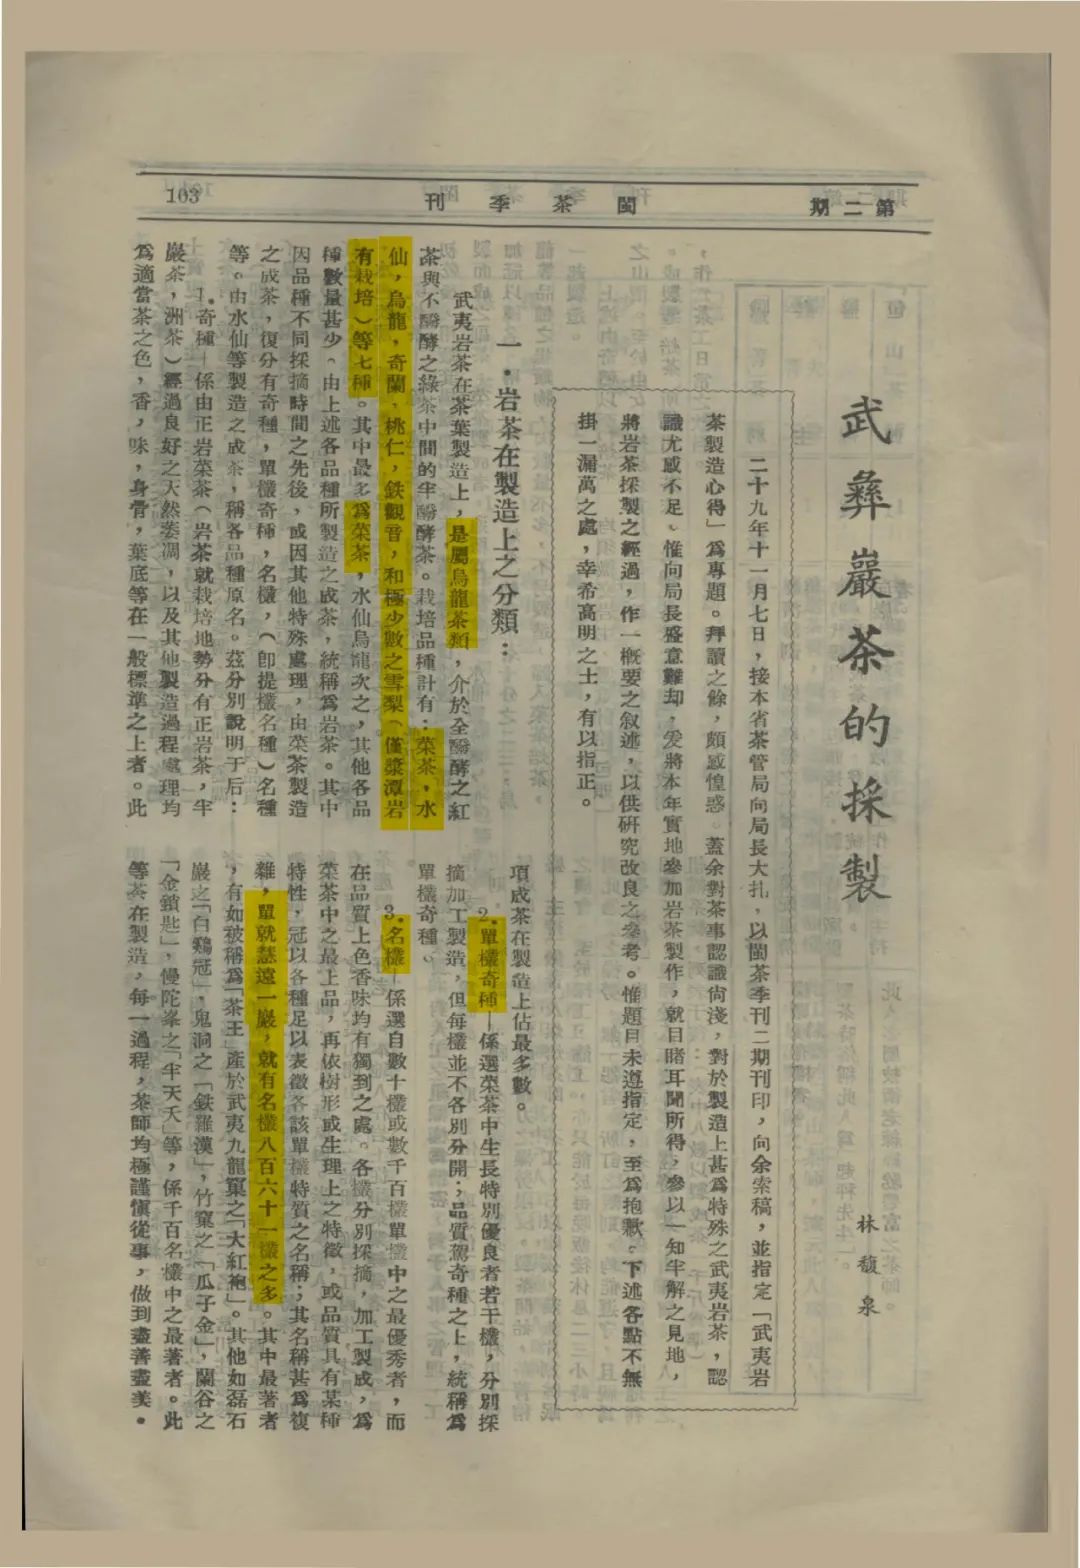 第二期
閩茶季刊
103
武彝巖茶的採製
林馥泉
二十九年十一月七日，接本省茶管局向局長大扎，以閩茶季刊二期刊印，向余索稿，並指定「武夷岩
茶製造心得」爲專題。拜讀之餘，頗感惶惑。蓋余對茶事認識尙淺，對於製造上甚爲特殊之武夷岩茶，認
識尤感不足、惟向局長盛意難却，爰將本年實地參加岩茶製作，就目睹耳聞所得，參以一知半解之見地，
將岩茶採製之經過，作一概要之叙述，以供研究改良之參考。惟題目未遵指定，至爲抱歉。下述各點不無
掛一漏萬之處，幸希高明之士，有以指正。
一．岩茶在製造上之分類：
武夷岩茶在茶葉製造上，是屬烏龍茶類，介於全醱酵之紅
茶與不醱酵之綠茶中間的半醱酵茶。栽培品種計有：菜茶，水
仙，烏龍，奇蘭，桃仁，鉄觀音，和極少數之雪梨（僅漿潭岩
有栽培）等七種。其中最多爲菜茶，水仙烏龍次之，其他各品
種數量甚少。由上述各品種所製造之成茶，統稱爲岩茶。其中
因品種不同採摘時間之先後，或因其他特殊處理，由菜茶製造
之成茶，復分有奇種，單欉奇種，名欉，（卽提欉名種）名種
等。由水仙等製造之成茶，稱各品種原名。茲分別說明于后：
1．奇種—係由正岩菜茶（岩茶就栽培地勢分有正岩茶，半
巖茶，洲茶）經過良好之天然萎凋，以及其他製造過程處理均
爲適當茶之色，香，味，身骨，葉底等在一般標準之上者。此
項成茶在製造上佔最多數。
2．單欉奇種—係選菜茶中生長特別優良者若干欉，分別採
摘加工製造，但每欉並不各別分開；品質駕奇種之上，統稱爲
單欉奇種。
3．名欉—係選自數十欉或數千百欉單欉中之最優秀者，而
在品質上色香味均有獨到之處。各欉分別採摘，加工製成，爲
菜茶中之最上品，再依樹形或生理上之特徵，或品質具有某種
特性，冠以各種足以表徵各該單欉特質之名稱；其名稱甚爲複
雜，單就慧遠一巖，就有名欉八百六十一欉之多。其中最著者
，有如被稱爲「茶王」產於武夷九龍窠之「大紅袍」。其他如磊石
巖之「白鷄冠」，鬼洞之「鉄羅漢」，竹窠之「瓜子金」，蘭谷之
「金鎖匙」，慢陀峯之「半天夭」等，係千百名欉中之最著者。此
等茶在製造，每一過程，茶師均極謹愼從事，做到盡善盡美。